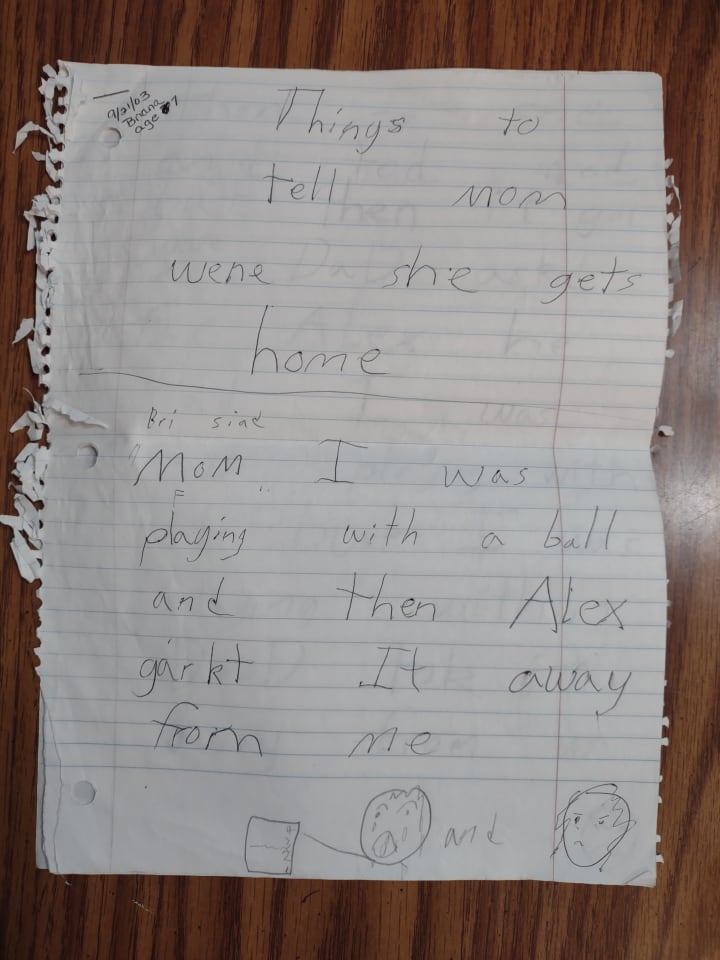 9/21/03
Briana
age 7
Things to
tell mom
wene she gets
home
Bri siad
"Mom I was
playing with a ball
and then Alex
garkt It away
from me
4
3
2
1
and